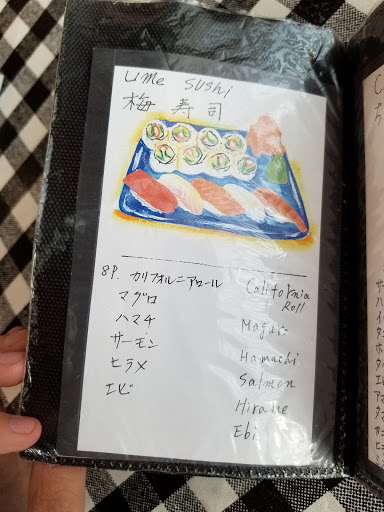 Ume Sushi
梅 寿司
8P. カリフォルニアロール
マグロ
ハマチ
サーモン
ヒラメ
エビ
California
Roll
Maguro
Hamachi
Salmon
Hirame
Ebi